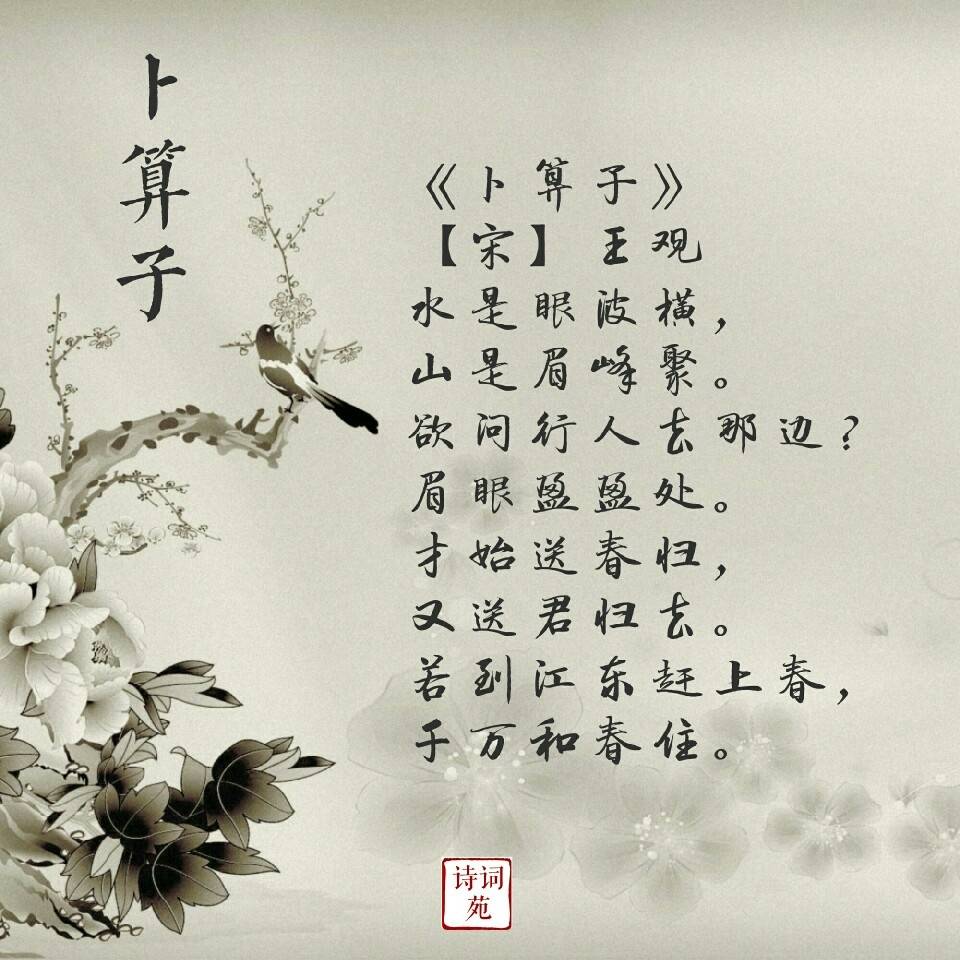 卜算子
《卜算子》
【宋】王观
水是眼波横，
山是眉峰聚。
欲问行人去那边？
眉眼盈盈处。
才始送春归，
又送君归去。
若到江东赶上春，
千万和春住。
诗词
苑